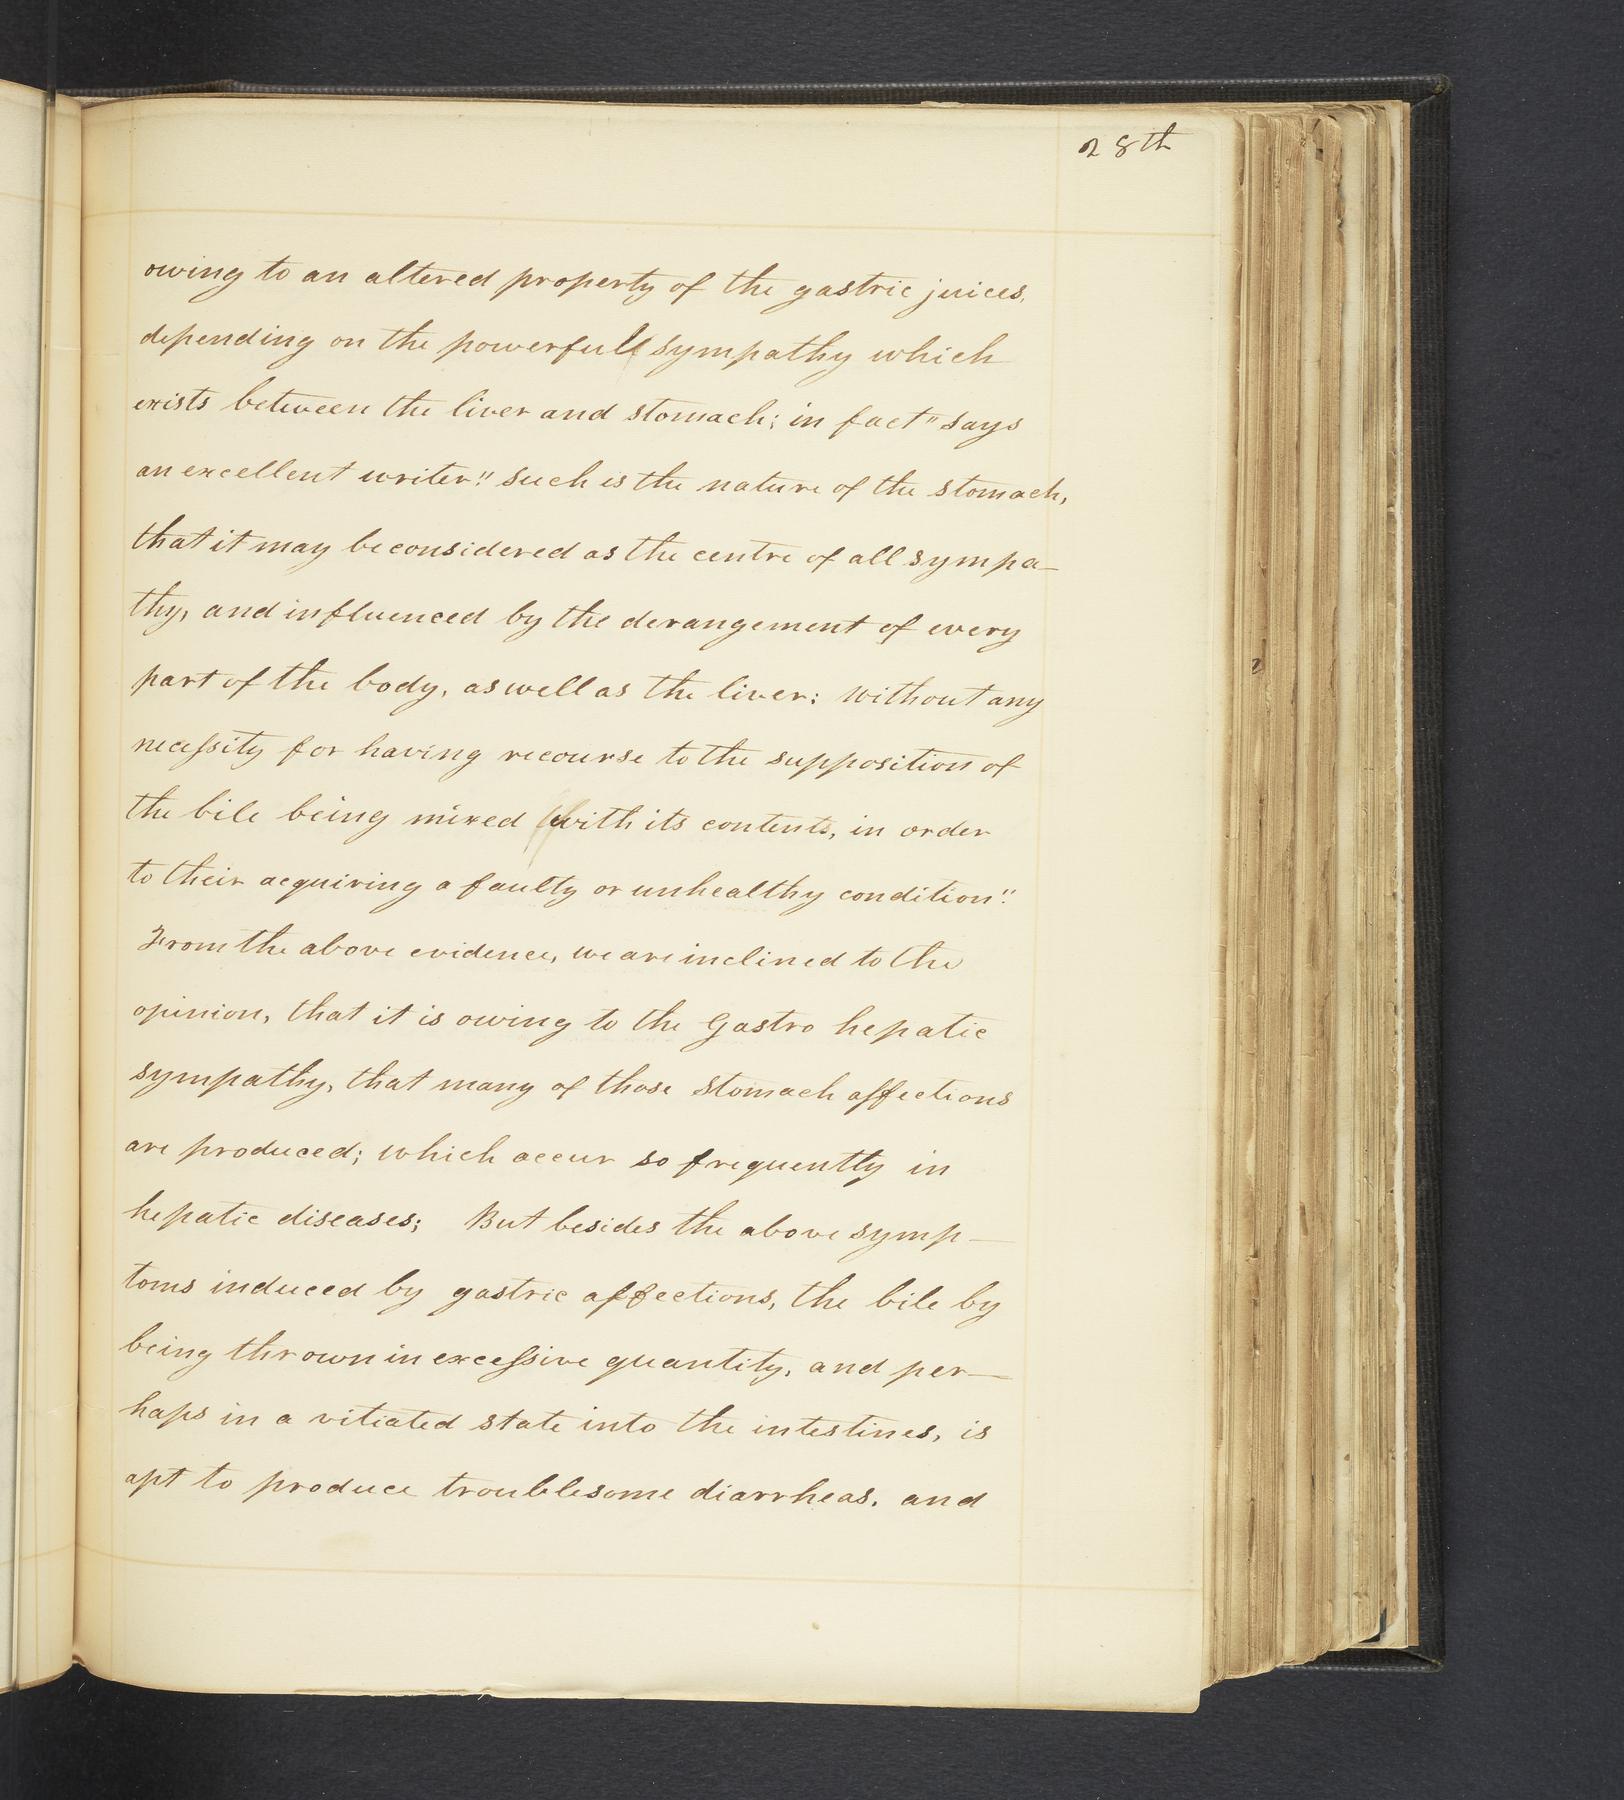 28th
owing to an altered property of the gastric juices,
depending on the powerfull sympathy which
exists between the liver and stomach; in fact" says
an excellent writer" such is the nature of the stomach,
that it may be considered as the centre of all sympa-
thy, and influenced by the derangement of every
part of the body, as well as the liver: without any
necessity for having recourse to the supposition of
the bile being mixed with its contents, in order
to their acquiring a faulty or unhealthy condition".
From the above evidence, we are inclined to the
opinion, that it is owing to the Gastro hepatic
sympathy, that many of those stomach affections
are produced; which occur so frequently in
hepatic diseases; But besides the above symp-
toms induced by gastric affections, the bile by
being thrown in excessive quantity, and per-
haps in a vitiated state into the intestines, is
apt to produce troublesome diarrheas, and